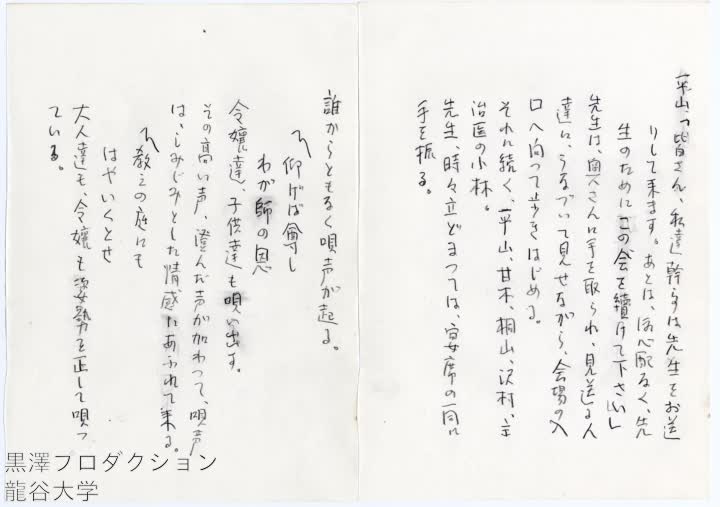 平山「皆さん、私達幹事は先生をお送
りして来ます。あとは、御心配なく、先
生のためにこの会を續けて下さい」
先生は、奥さんに手を取られ、見送る人
達に、うなづいて見せながら、会場の入
口へ向って歩きはじめる。
それに続く、平山、甘木、桐山、沢村、主
治医の小林。
先生、時々立どまっては、宴席の一同に
手を振る。
誰からともなく唄声が起る。
〽仰げば尊し
わが師の恩
令嬢達、子供達も唄い出す。
その高い声、澄んだ声が加わって、唄声
は、しみじみとした情感にあふれて来る。
〽教えの庭にも
はやいくとせ
大人達も、令嬢も姿勢を正して唄っ
ている。
黒澤プロダクション
龍谷大学